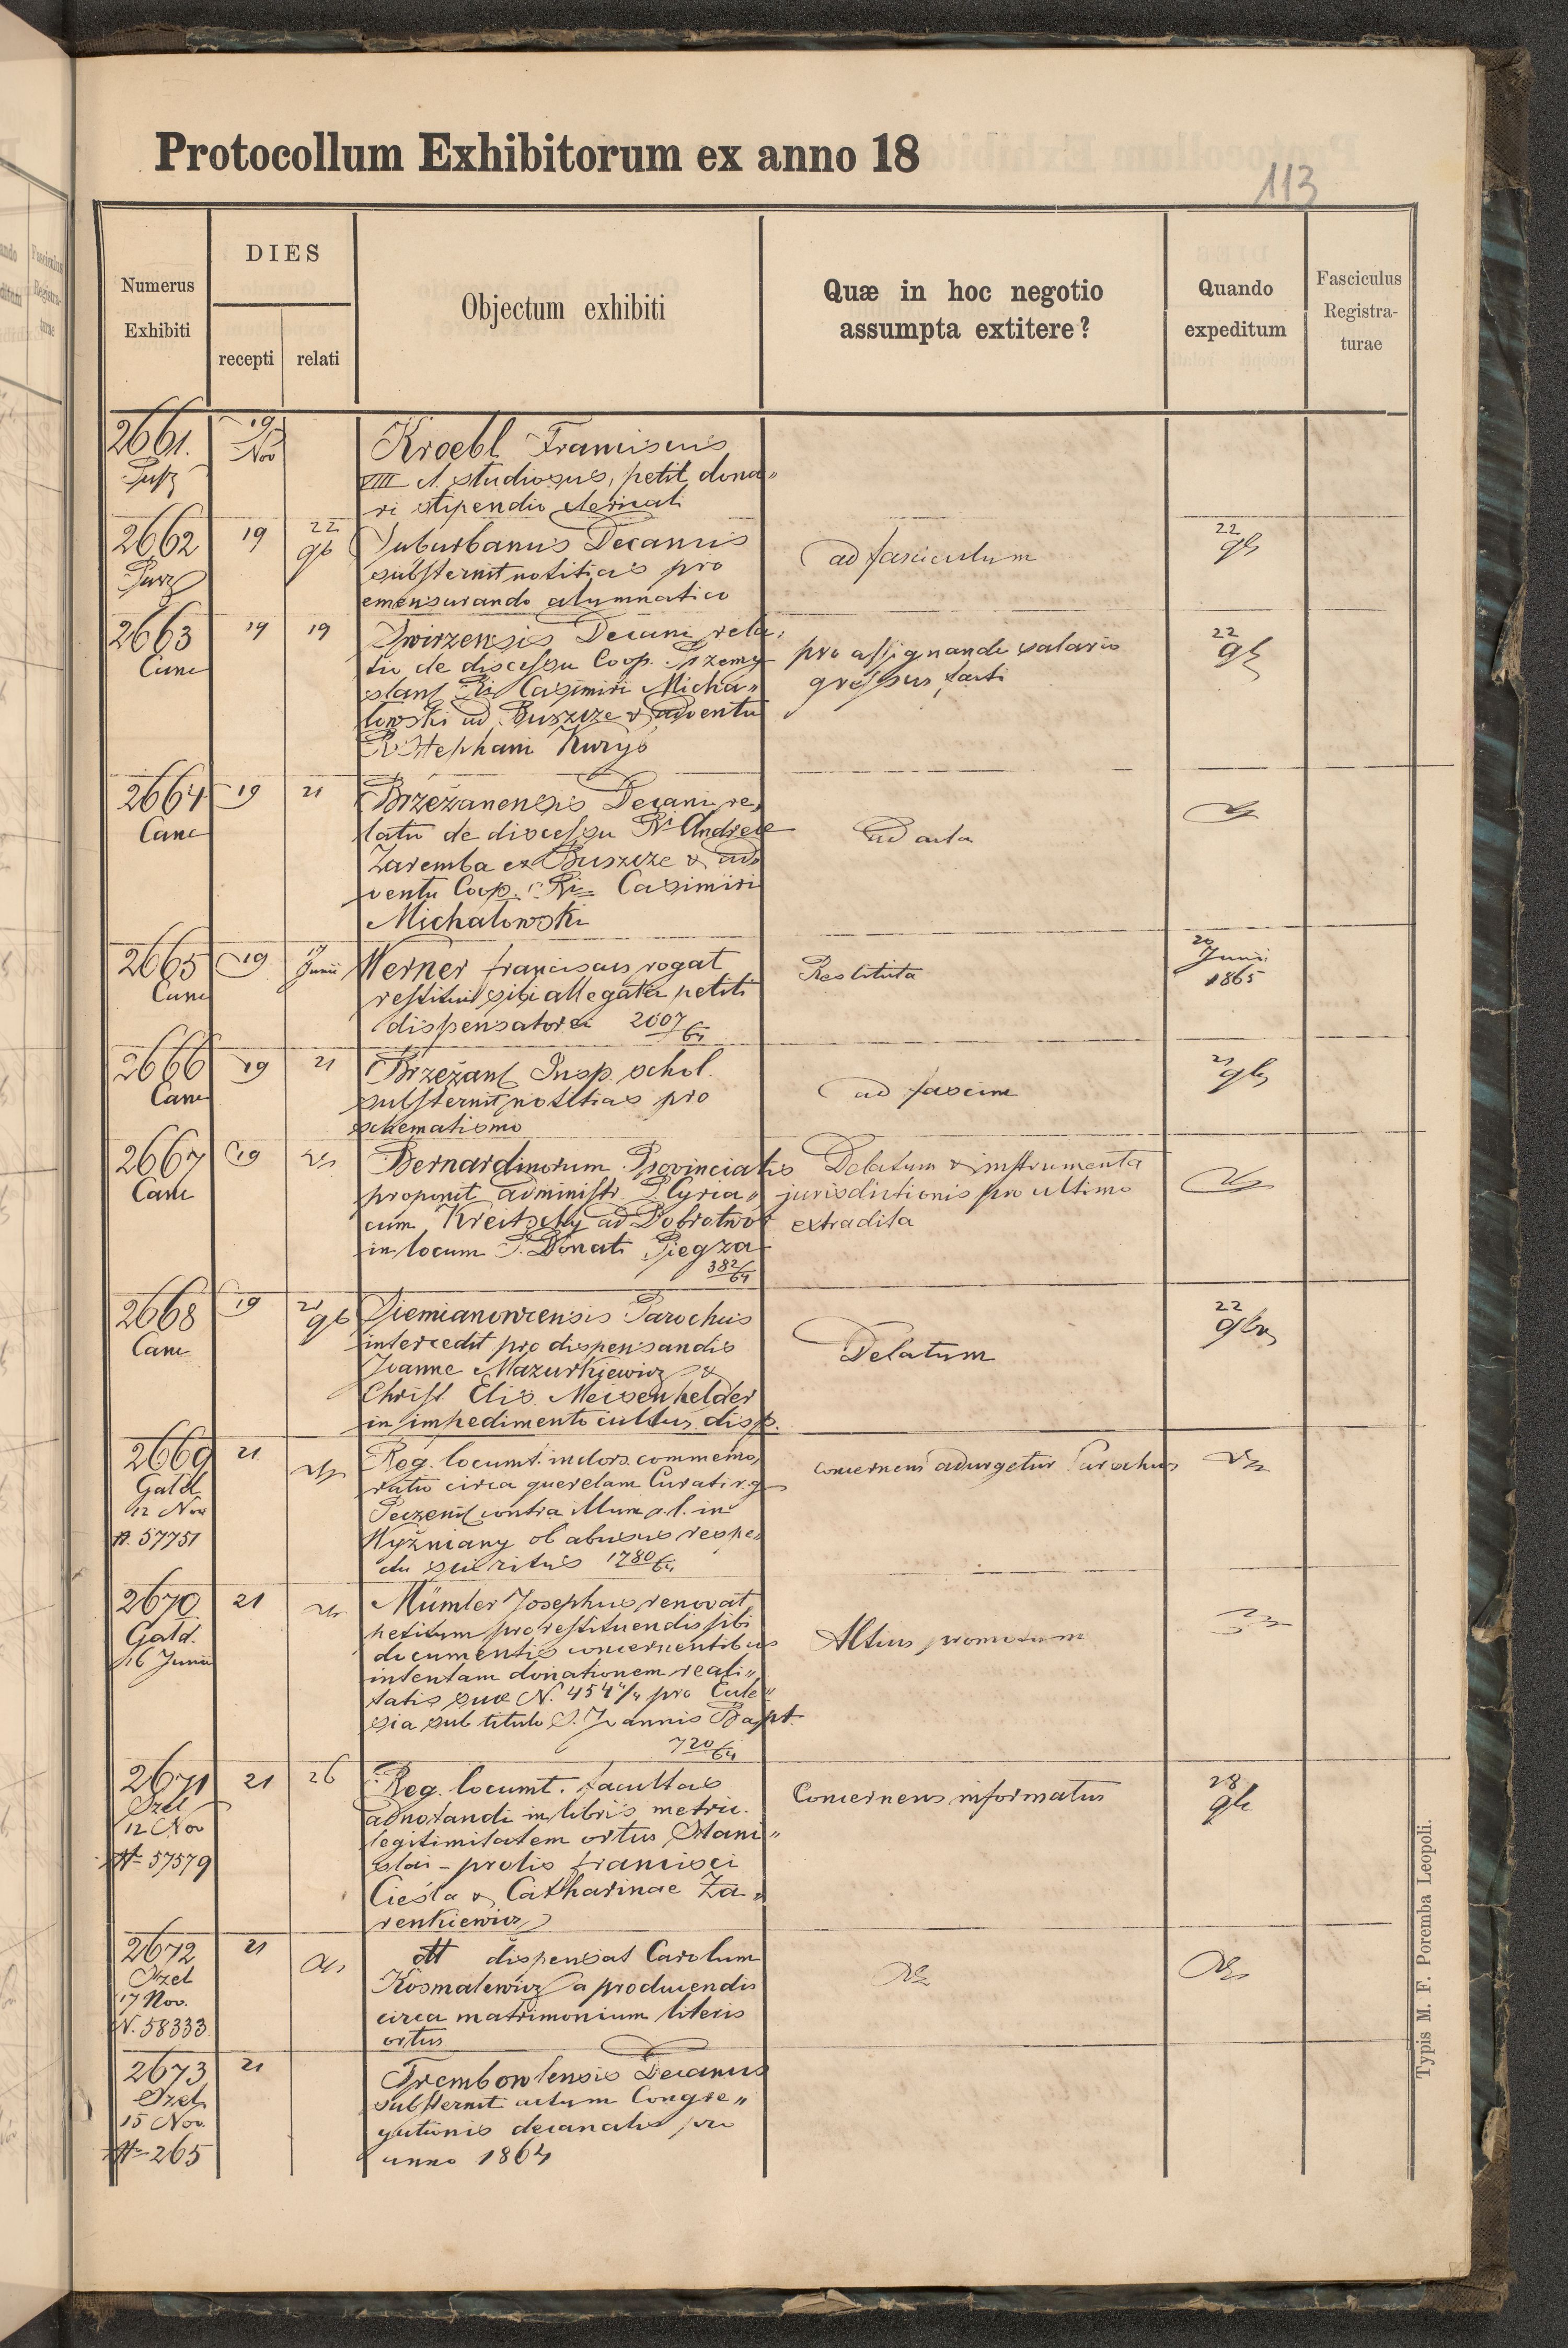 Protocollum Exhibitorum ex anno 18
113
Numerus Exhibiti
DIES
recepti
relati
Objectum exhibiti
Quæ in hoc negotio
assumpta extitere?
Quando
expeditum
Fasciculus
Registra-
turae
2661.
19
Nov
Kroebl Franciscus
VIII cl. studiosus, petit dona„
ri stipendio clericali
2662
19
22
9b
Suburbanus Decanus
substernit notitias pro
emensurando alumnatico
ad fasciculum
22
2663
Canc
19
19
Swirzensis Decani rela„
tio de discessu Coop. Przemy
slans Ri Casimiri Micha„
lowski ad Buszcze & adventu
R. Stephani Kuryś
pro assignando salario
gressus facti
22
2664
Canc
19
21
Brzeżanensis Decani re„
latio de discessu Ri Andreae
Zaremba ex Buszcze & ad„
ventu Coop. Ri Casimiri
Michałowski
ad acta
2665
Canc
19
17
Junii
Werner Franciscus rogat
restitui sibi allegata petiti
dispensatorii 2007/64
Restituta
20
Junii
1865
2666
Canc
19
21
Brzeżans Insp. schol.
substernit notitias pro
schematismo
ad fascim
21
2667
Canc
19
Bernardinorum Provincialis
proponit administr. P. Cyria„
cum Kreitschy ad Dobrotwor
in locum P. Donati Piegza
382/64
Delatum & instrumenta
jurisdictionis pro ultimo
extradita
2668
Canc
19
21
9b
Siemianowcensis Parochus
intercedit pro dispensandis
Joanne Mazurkiewicz &
Christ. Elis. Meisenhelder
in impedimento cultus disp.
Delatum
22
2669
12 Nov
N. 57751
21
Reg. locumt. indors. commemo„
ratio circa querelam Curati r. g.
Peczenij contra illum r. l. in
Wyżniany ob abusus respe„
ctu sui ritus 1780/64
concernens adurgetur Parochus
2670
16 Junii
21
Mümler Josephus renovat
petitum pro restituendis sibi
documentis concernentibus
intentam donationem reali„
tatis suae N. 454 4/4 pro Eccle„
sia sub titulo S. Joannis Bapt.
720/64
Altius promotum
2671
12 Nov
N 57579
21
26
Reg. locumt. facultas
adnotandi in libris metric.
legitimitatem ortus Stani„
slai - prolis Francisci
Cieśla & Catharinae Za„
renkiewicz
Concernens informatus
28
2672
17 Nov.
N. 58333
21
dtt dispensat Carolum
Kosmalewicz a producendis
circa matrimonium literis
ortus
2673
15 Nov.
N 265
21
Trembowlensis Decanus
substernit actum Congre„
gationis decanalis pro
anno 1864
Typis M. F. Poremba Leopoli.